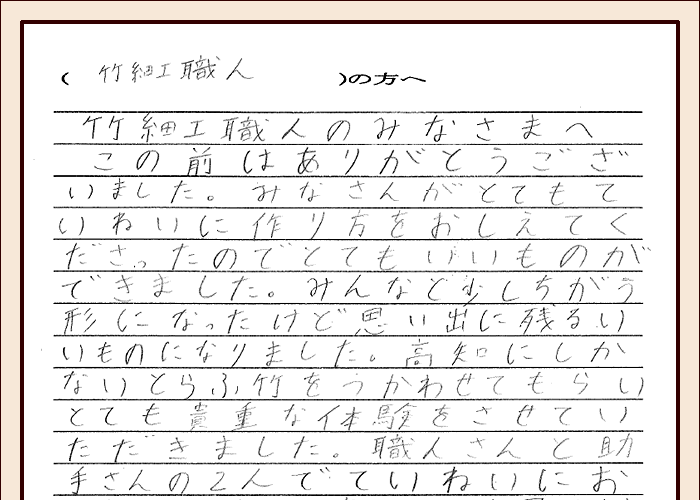 ( 竹細工職人 )の方へ
竹細工職人のみなさまへ
この前はありがとうござ
いました。みなさんがとてもて
いねいに作り方をおしえてく
ださったのでとてもいいものが
できました。みんなと少しちがう
形になったけど思い出に残るい
いものになりました。高知にしか
ないとらふ竹をつかわせてもらい
とても貴重な体験をさせてい
ただきました。職人さんと助
手さんの2人でていねいにお